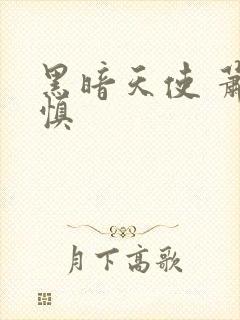 黑暗天使 蕭
慎
月下高歌